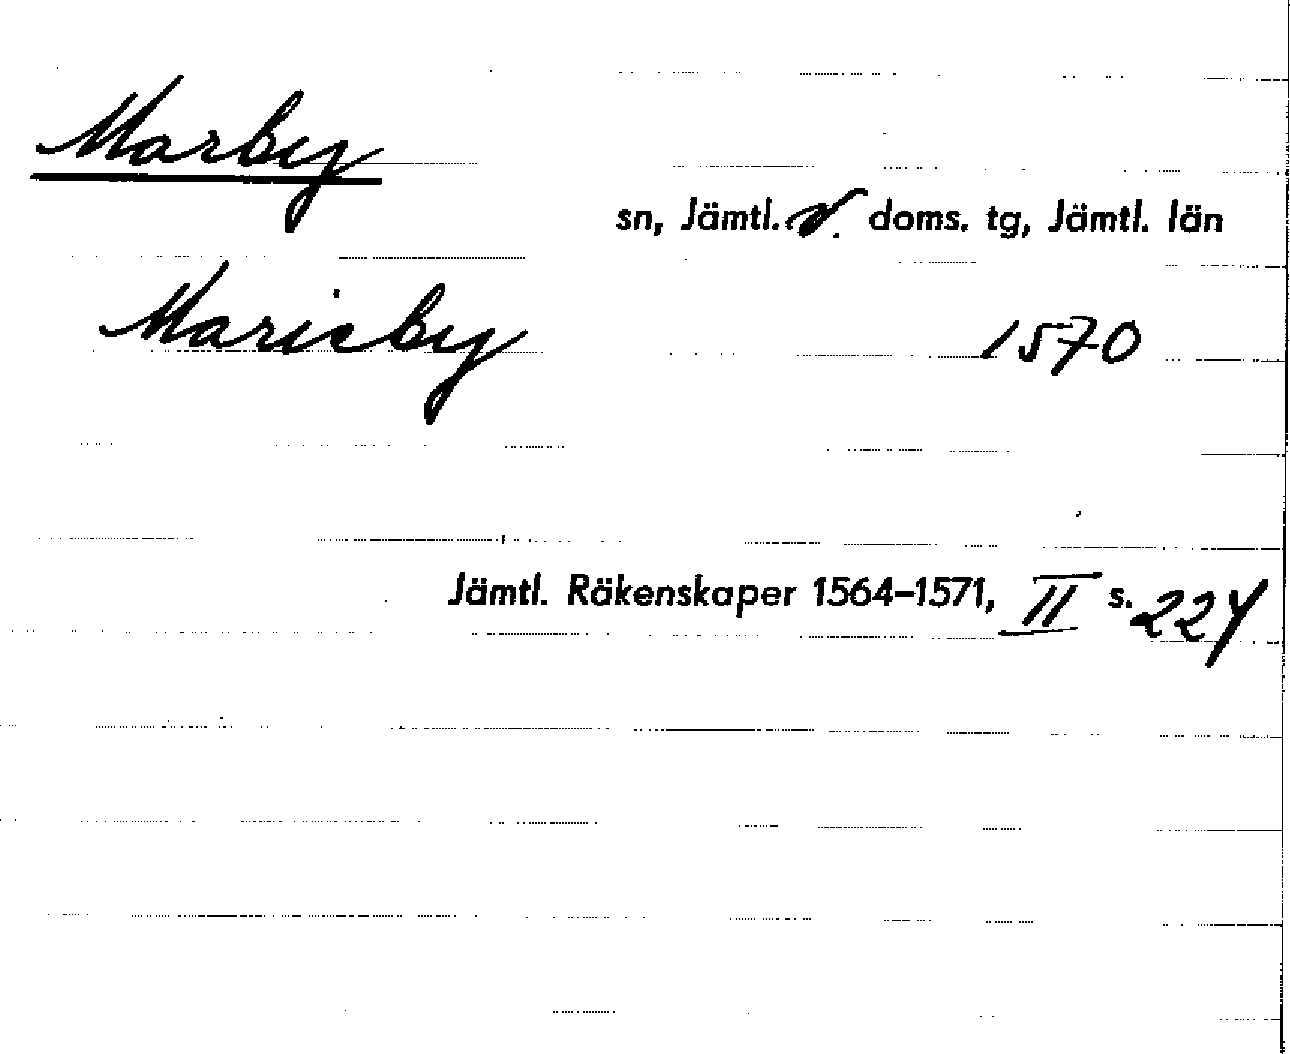 Marby
sn, Jämtl. v. doms. tg, Jämtl. län
Marieby 1570
Jämtl. Räkenskaper 1564–1571, II s. 224